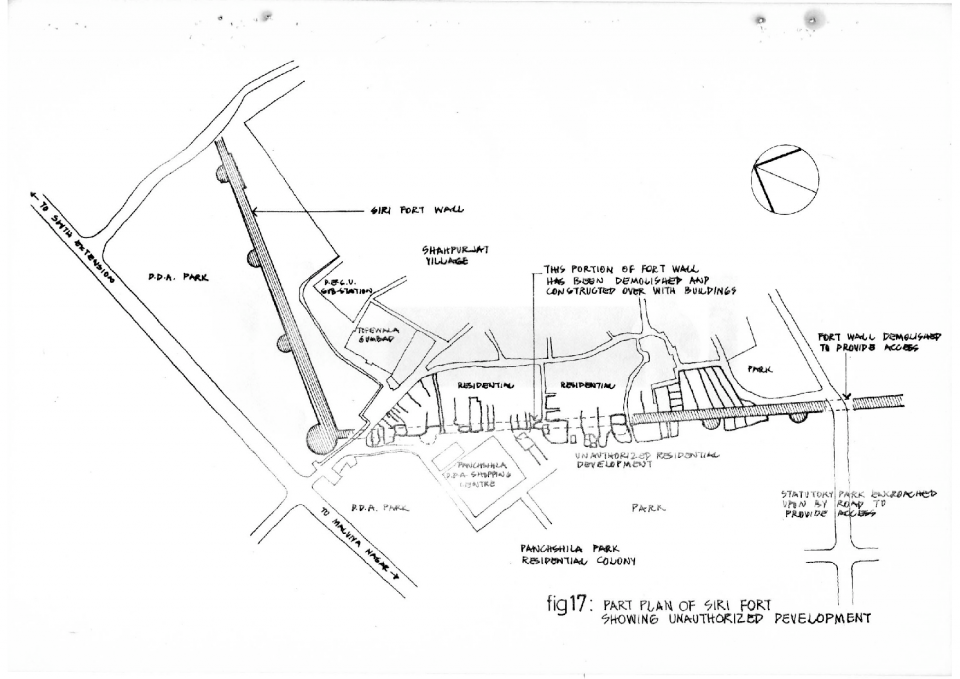 ← TO SOUTH EXTENSION
D.D.A. PARK
SIRI FORT WALL
SHAHPURJAT
VILLAGE
D.E.S.U.
SUB-STATION
TOHEWALA
GUMBAD
THIS PORTION OF FORT WALL
HAS BEEN DEMOLISHED AND
CONSTRUCTED OVER WITH BUILDINGS
FORT WALL DEMOLISHED
TO PROVIDE ACCESS
PARK
RESIDENTIAL
RESIDENTIAL
UNAUTHORIZED RESIDENTIAL
DEVELOPMENT
PANCHSHILA
D.D.A SHOPPING
CENTRE
D.D.A. PARK
PARK
STATUTORY PARK ENCROACHED
UPON BY ROAD TO
PROVIDE ACCESS
TO MALVIYA NAGAR →
PANCHSHILA PARK
RESIDENTIAL COLONY
fig17: PART PLAN OF SIRI FORT
SHOWING UNAUTHORIZED DEVELOPMENT